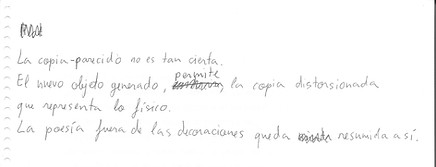 La copia-parecido no es tan cierta.
El nuevo objeto generado, permite la copia distorsionada
que representa lo físico.
La poesía fuera de las decoraciones queda resumida así.